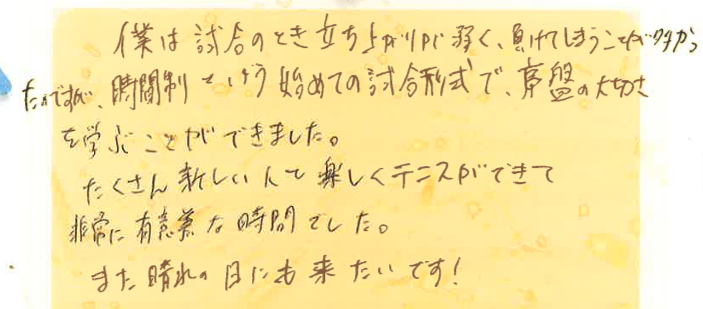 僕は試合のとき立ち上がりが弱く、負けてしまうことが多かっ
たのですが、時間制という始めての試合形式で、序盤の大切さ
を学ぶことができました。
たくさん新しい人と楽しくテニスができて
非常に有意義な時間でした。
また晴れの日にも来たいです!